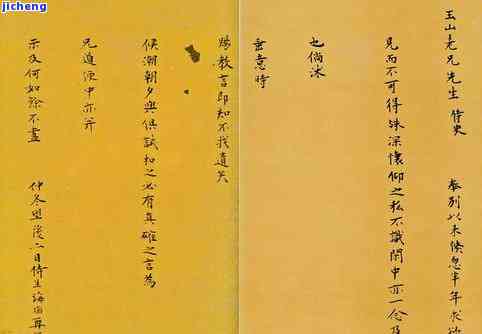 jicheng
玉山老兄先生 侍史 奉別以来倏忽半年求欲
見而不可得殊深懷仰之私不識閑中亦一念及
也倘沐
垂意時
賜教言即知不我遺矣
候潮朝夕與俱試扣之必有真確之言為
兄道源中亦并
示及何如餘不盡 仲冬望後六日侍生海